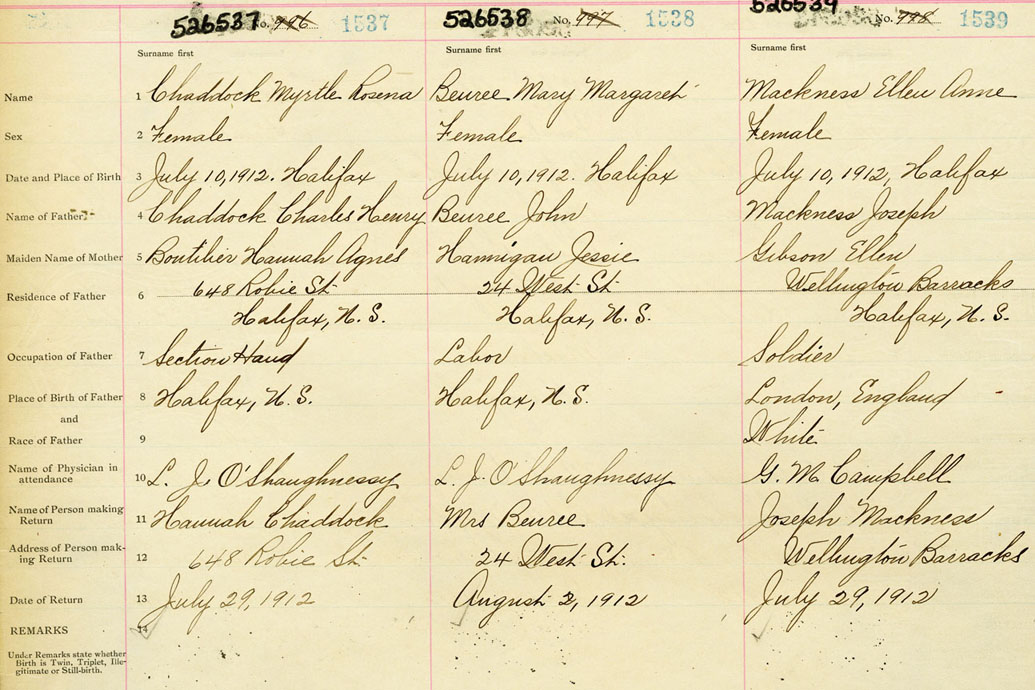 526537 No. 996 1537 526538 No. 997 1538 526539 No. 998 1539
Surname first Surname first Surname first
Name 1 Chaddock Myrtle Rosena Beuree Mary Margaret Mackness Ellen Anne
Sex 2 Female Female Female
Date and Place of Birth 3 July 10, 1912. Halifax July 10, 1912. Halifax July 10, 1912, Halifax
Name of Father 4 Chaddock Charles Henry Beuree John Mackness Joseph
Maiden Name of Mother 5 Boutilier Hannah Agnes Hannigan Jessie Gibson Ellen
Residence of Father 6 648 Robie St. 24 West St. Wellington Barracks
Halifax, N.S. Halifax, N.S. Halifax, N.S.
Occupation of Father 7 Section Hand Labor Soldier
Place of Birth of Father 8 Halifax, N.S. Halifax, N.S. London, England
and
Race of Father 9 White
Name of Physician in
attendance 10 L. J. O'Shaughnessy L. J. O'Shaughnessy G. M. Campbell
Name of Person making
Return 11 Hannah Chaddock Mrs Beuree Joseph Mackness
Address of Person mak-
ing Return 12 648 Robie St. 24 West St. Wellington Barracks
Date of Return 13 July 29, 1912 August 2, 1912 July 29, 1912
REMARKS 14
Under Remarks state whether
Birth is Twin, Triplet, Ille-
gitimate or Still-birth.